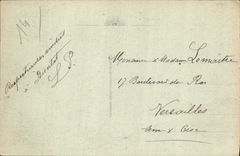 14
Respectueuses amitiés
à Bientôt
L. P.
Monsieur & Madame Lemaitre
17 Boulevard du Roi
Versailles
Seine & Oise